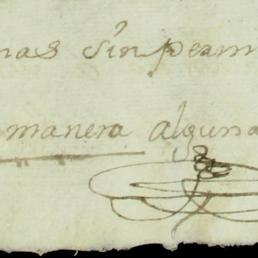 nas sin perm
manera alguna